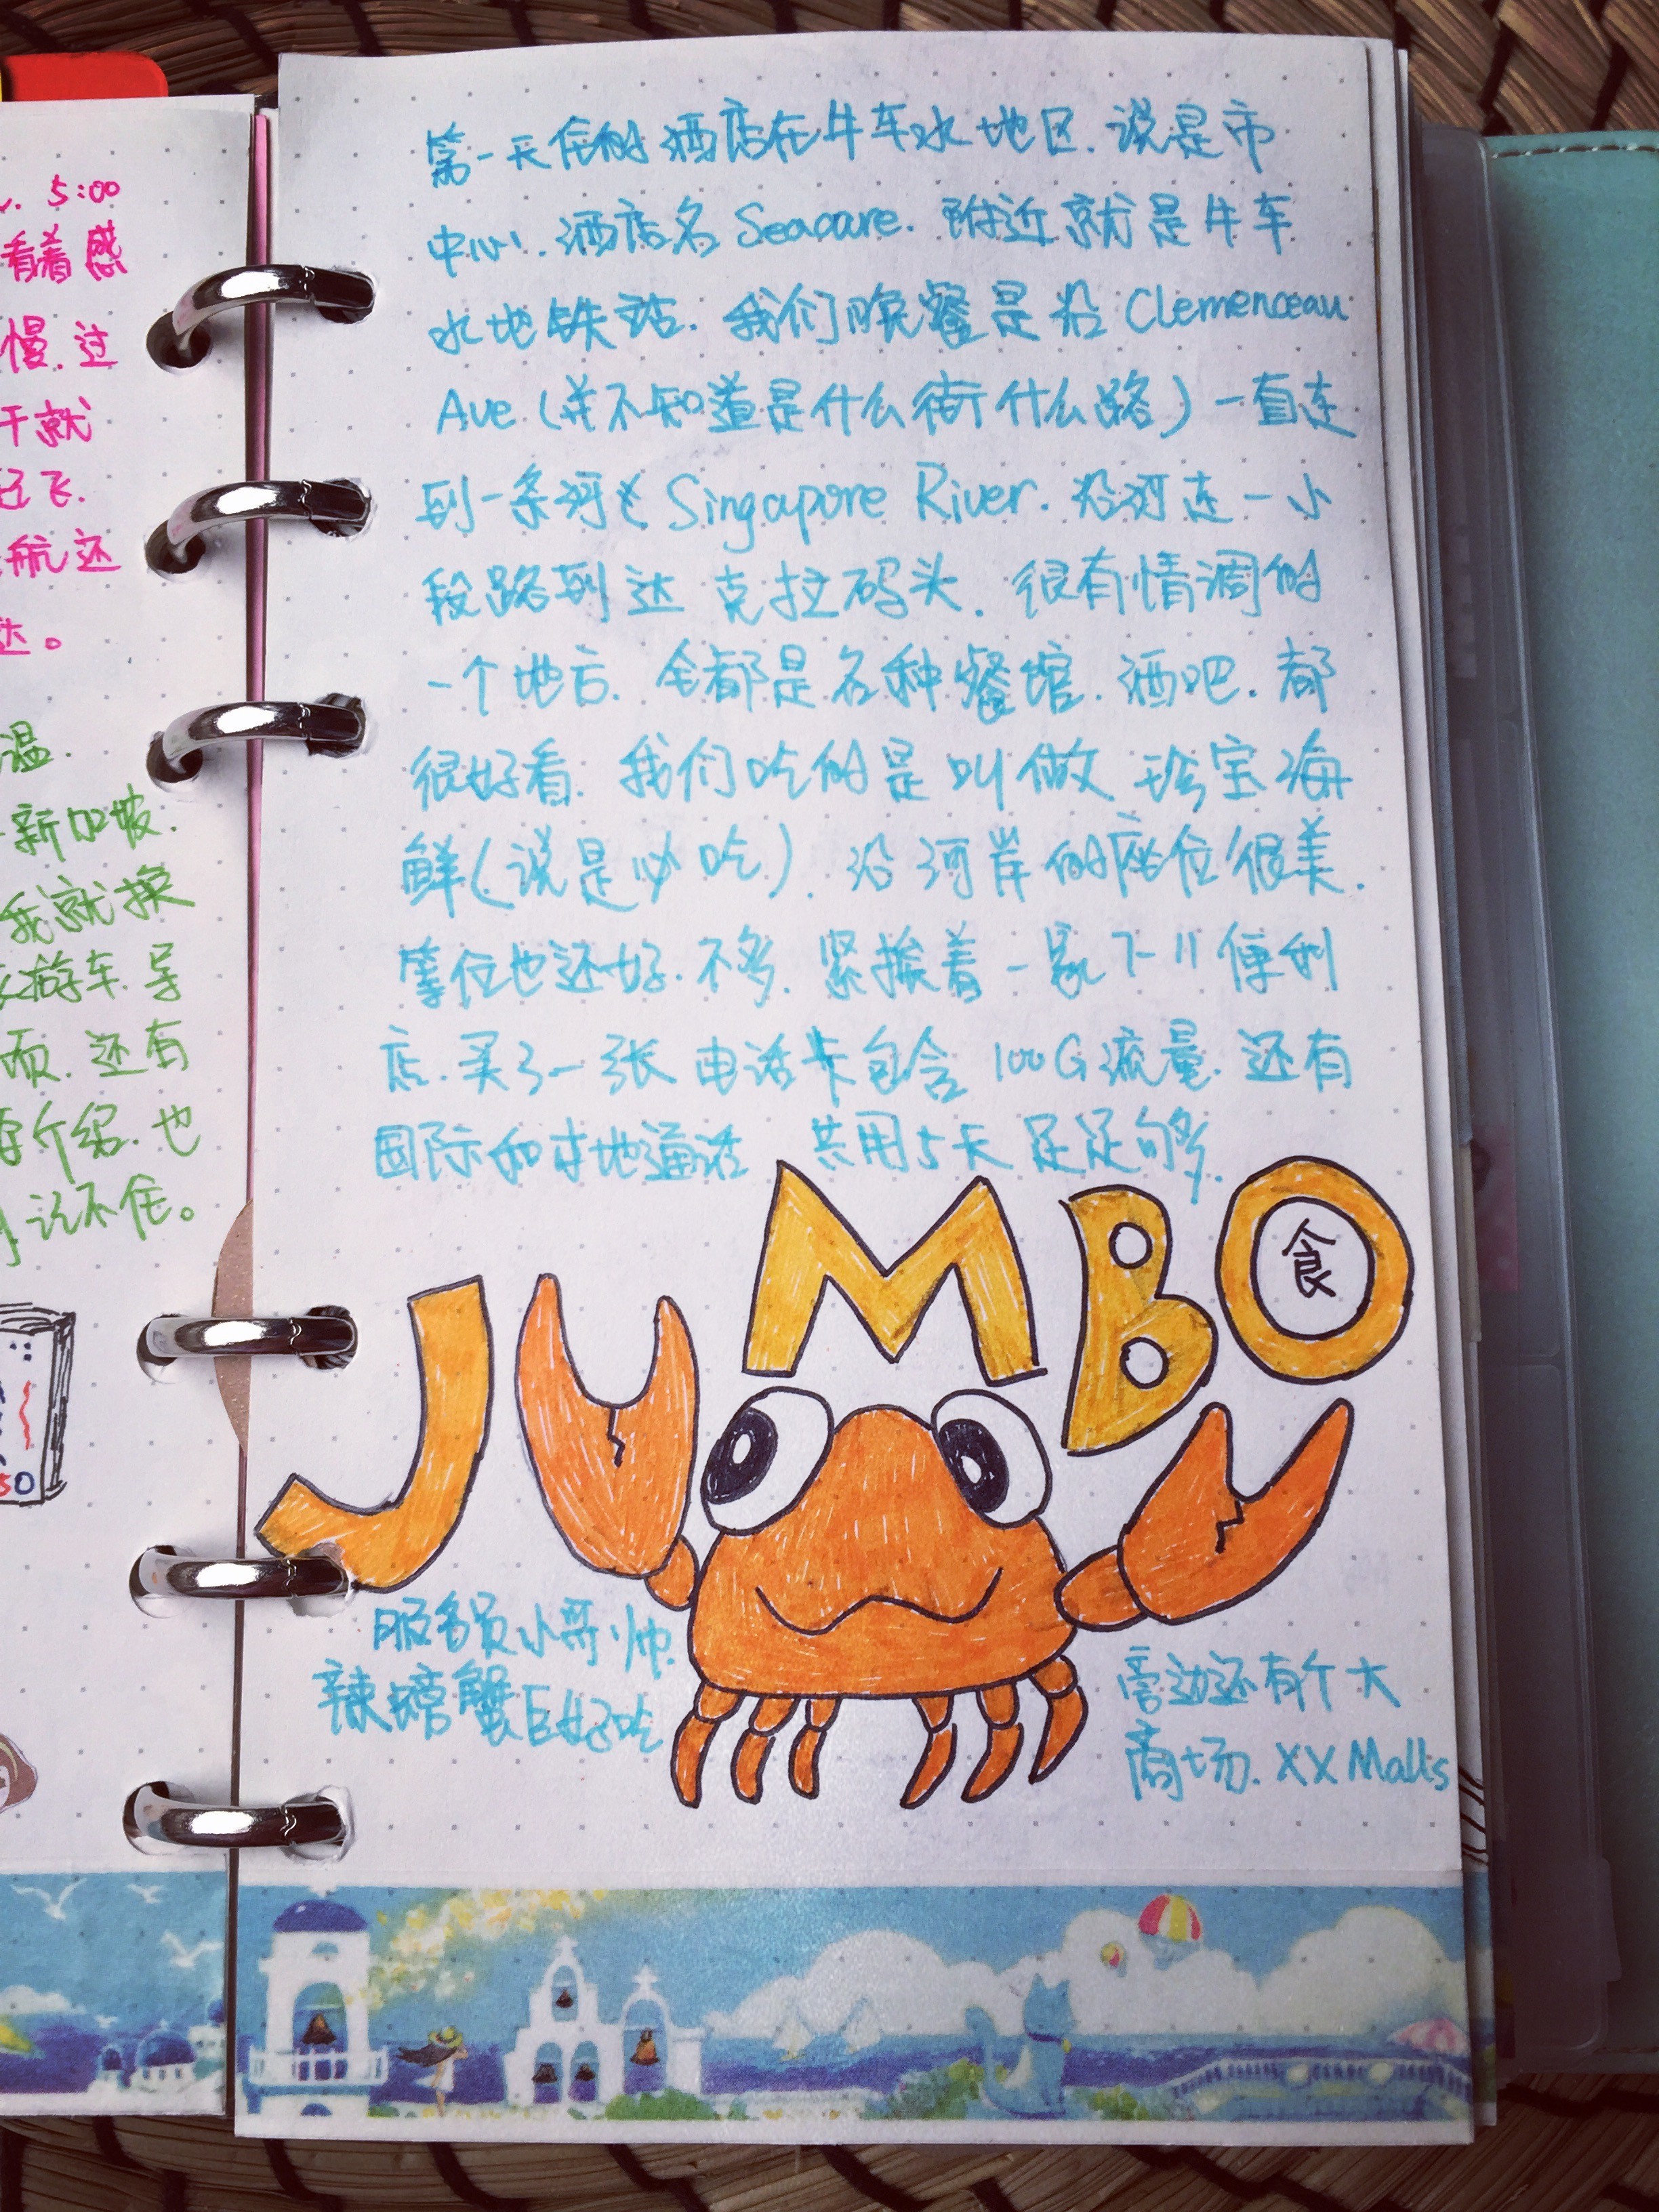 . 5:00
看着感
慢.过
干就
起飞.
航还
达。
温.
新加坡.
我就换
游车.导
项.还有
介绍.也
记不住。
50
第一天住的酒店在牛车水地区.说是市
中心.酒店名 Seacare.附近就是牛车
水地铁站.我们晚餐是沿 Clemenceau
Ave (并不知道是什么街什么路)一直走
到一条河 Singapore River.沿河走一小
段路到达 克拉码头.很有情调的
一个地方.全都是各种餐馆.酒吧.都
很好看.我们吃的是叫做 珍宝海
鲜(说是必吃).沿河岸的座位很美.
等位也还好.不多.紧挨着一家 7-11 便利
店.买了一张 电话卡包含 100G流量.还有
国际和本地通话 共用5天 足足够.
JUMBO
食
服务员小哥帅.
辣螃蟹巨好吃
旁边还有个大
商场.XX Malls